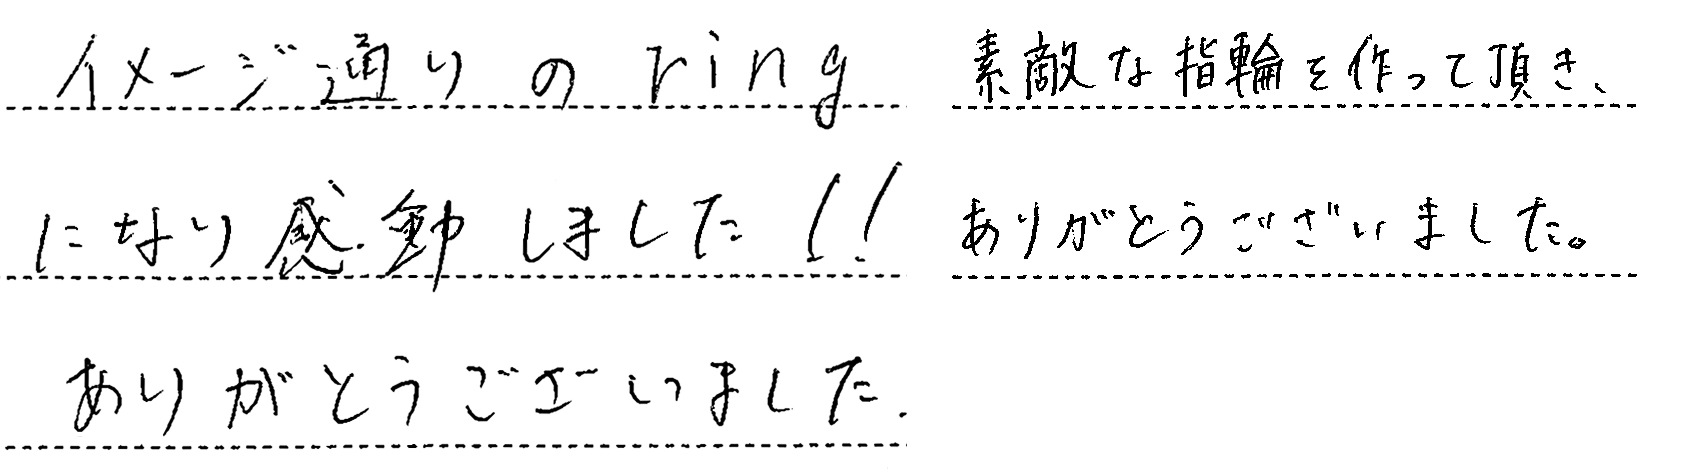 イメージ通りのring
になり感動しました!!
ありがとうございました.
素敵な指輪を作って頂き、
ありがとうございました。